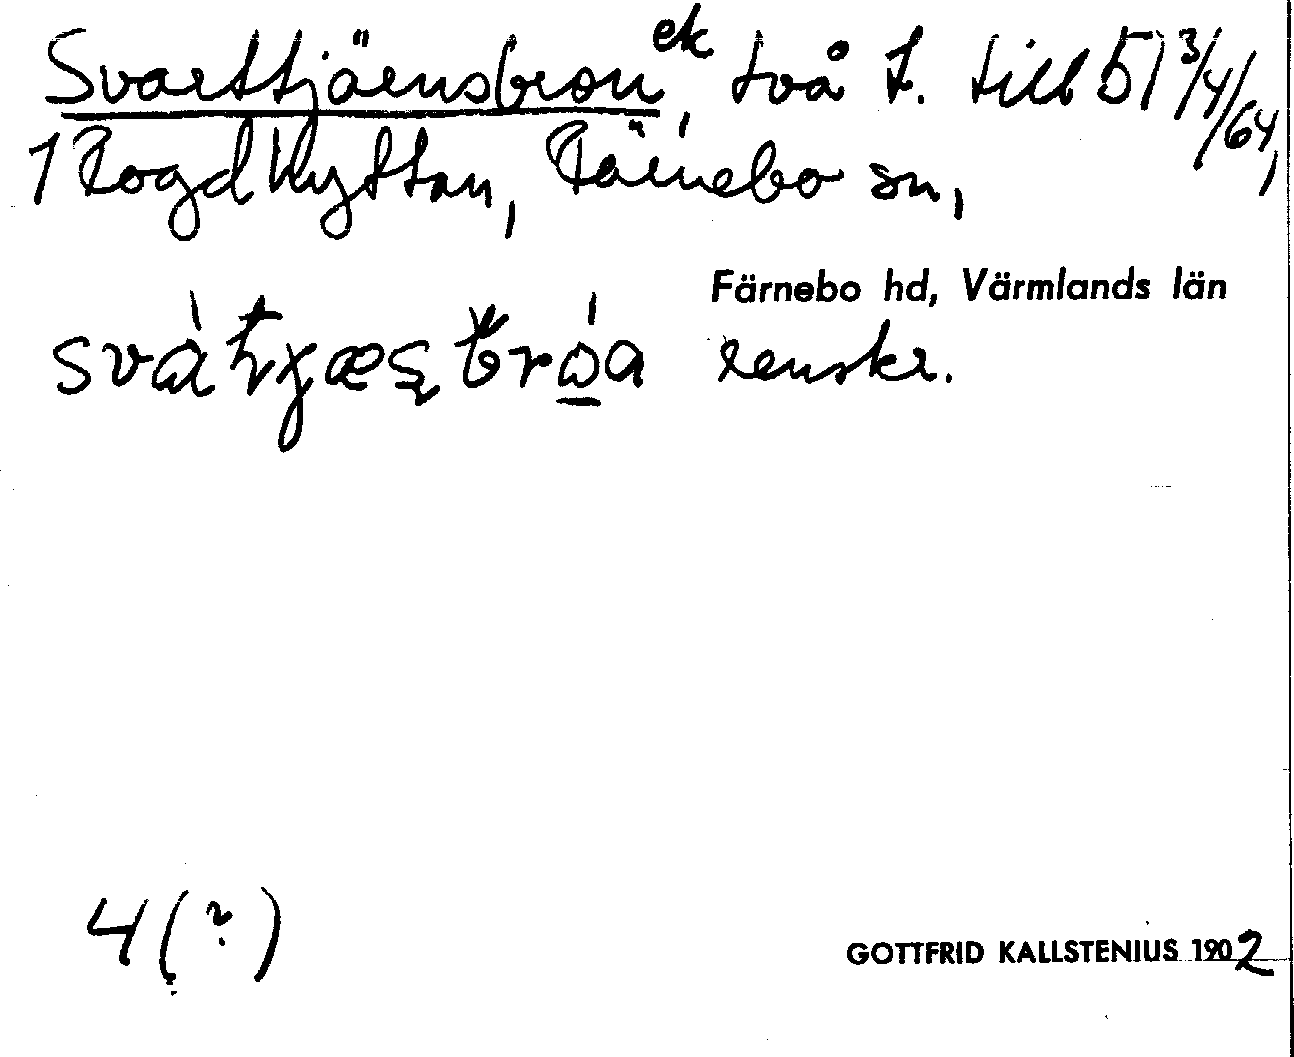 Svarttjärnsbron ek, två t. till 51 3/4/64,
1 Rogdhyttan, Rämebo sn,
Färnebo hd, Värmlands län
renskr.
4 (?)
GOTTFRID KALLSTENIUS 1902